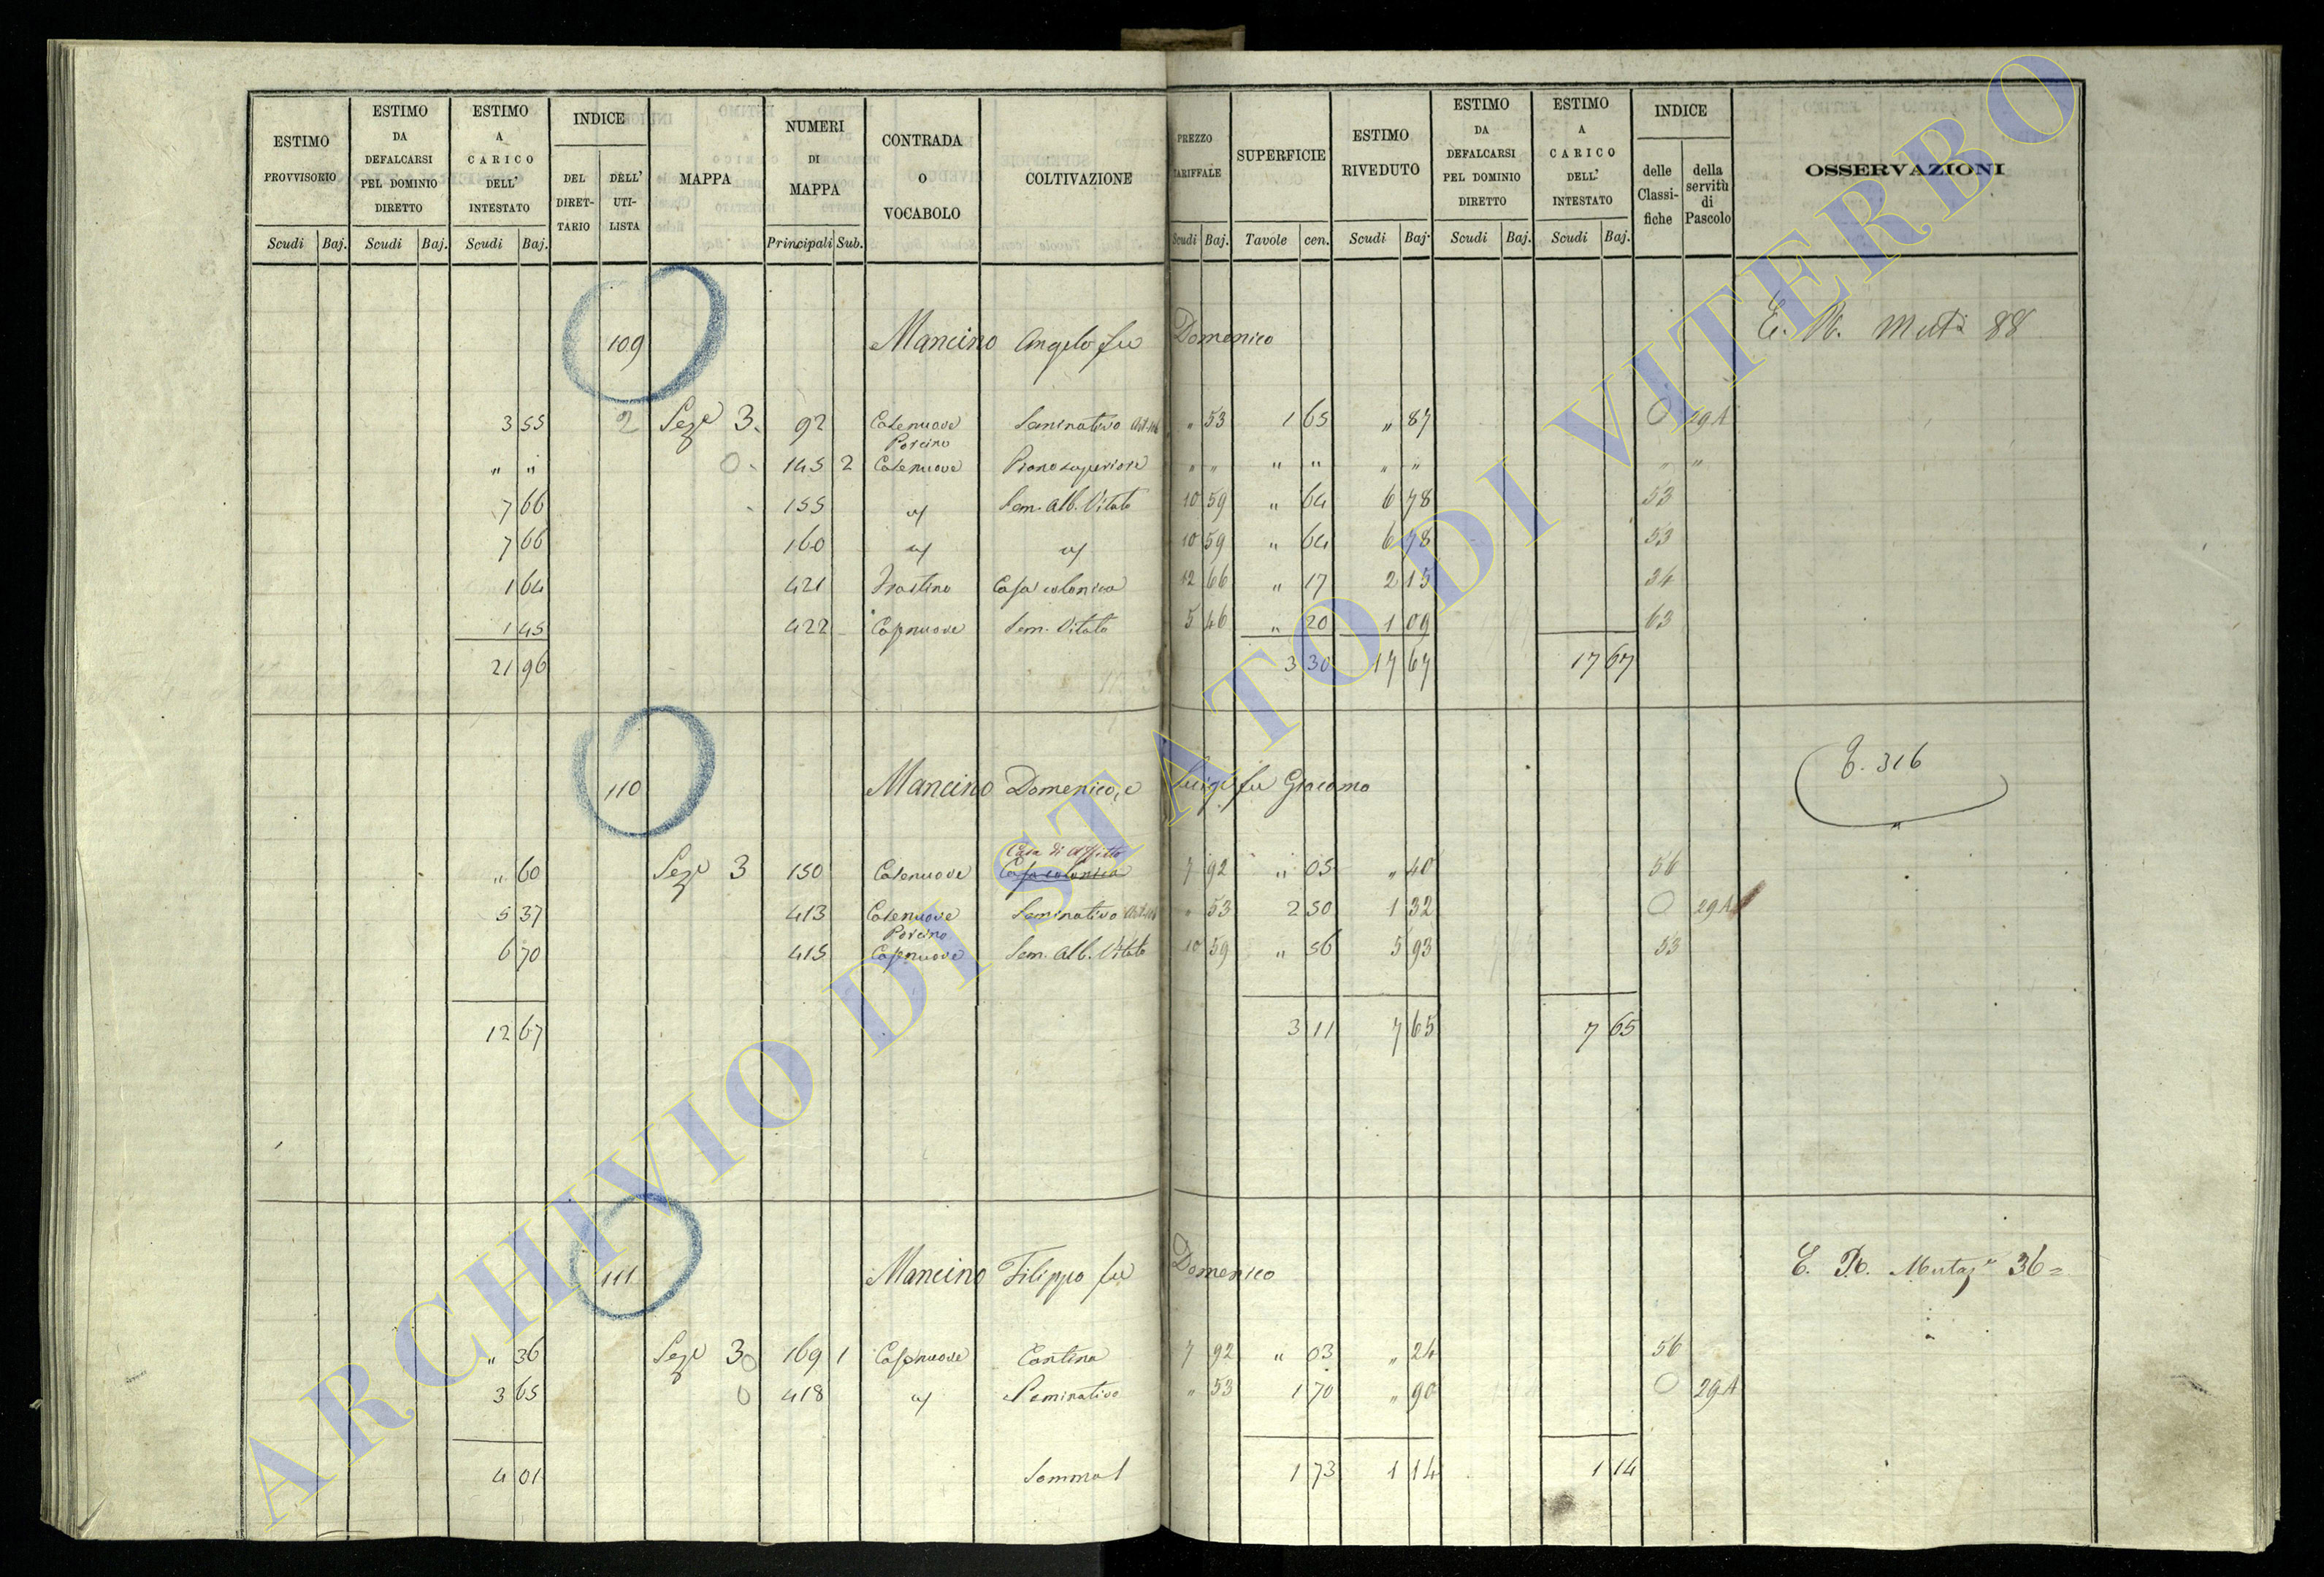 ESTIMO PROVVISORIO
ESTIMO DA DEFALCARSI PEL DOMINIO DIRETTO
ESTIMO A CARICO DELL' INTESTATO
INDICE
DEL DIRETTARIO
DELL' UTILISTA
MAPPA
NUMERI DI MAPPA
CONTRADA O VOCABOLO
COLTIVAZIONE
PREZZO TARIFFALE
SUPERFICIE
ESTIMO RIVEDUTO
ESTIMO DA DEFALCARSI PEL DOMINIO DIRETTO
ESTIMO A CARICO DELL' INTESTATO
INDICE
delle Classifiche
della servitù di Pascolo
OSSERVAZIONI
Scudi Baj. Scudi Baj. Scudi Baj. Principali Sub. Scudi Baj. Tavole cen. Scudi Baj. Scudi Baj. Scudi Baj.
109 Mancino Angelo fu Domenico 88
3 55 2 Sez e 3. 92 Casenuove Porcino Seminativo " 53 1 65 " 87 0 29A
" " 0. 145 2 Casenuove Piano superiore " " " " " " " "
7 66 155 Sem. Alb. Vitato 10 59 " 64 6 78 53
7 66 160 10 59 " 64 6 78 53
1 64 421 Casa colonica 12 66 " 17 2 15 34
1 45 422 Casenuove Sem. Vitato 5 46 " 20 1 09 63
21 96 3 30 17 67 17 67
110 Mancino Domenico, e Luigi fu Giacomo 316
Casa di affitto
" 60 Sez e 3 150 Casenuove Casa colonica 7 92 " 05 " 40 56
5 37 413 Casenuove Porcino Seminativo " 53 2 50 1 32 0 29A
6 70 415 Casenuove Sem. Alb. Vitato 10 59 " 56 5 93 53
12 67 3 11 7 65 7 65
111 Mancino Filippo fu Domenico 36
" 36 Sez e 3 0 169 1 Casenuove Cantina 7 92 " 03 " 24 56
3 65 0 418 Seminativo " 53 1 70 " 90 0 29A
4 01 Somma 1 73 1 14 1 14
ARCHIVIO DI STATO DI VITERBO